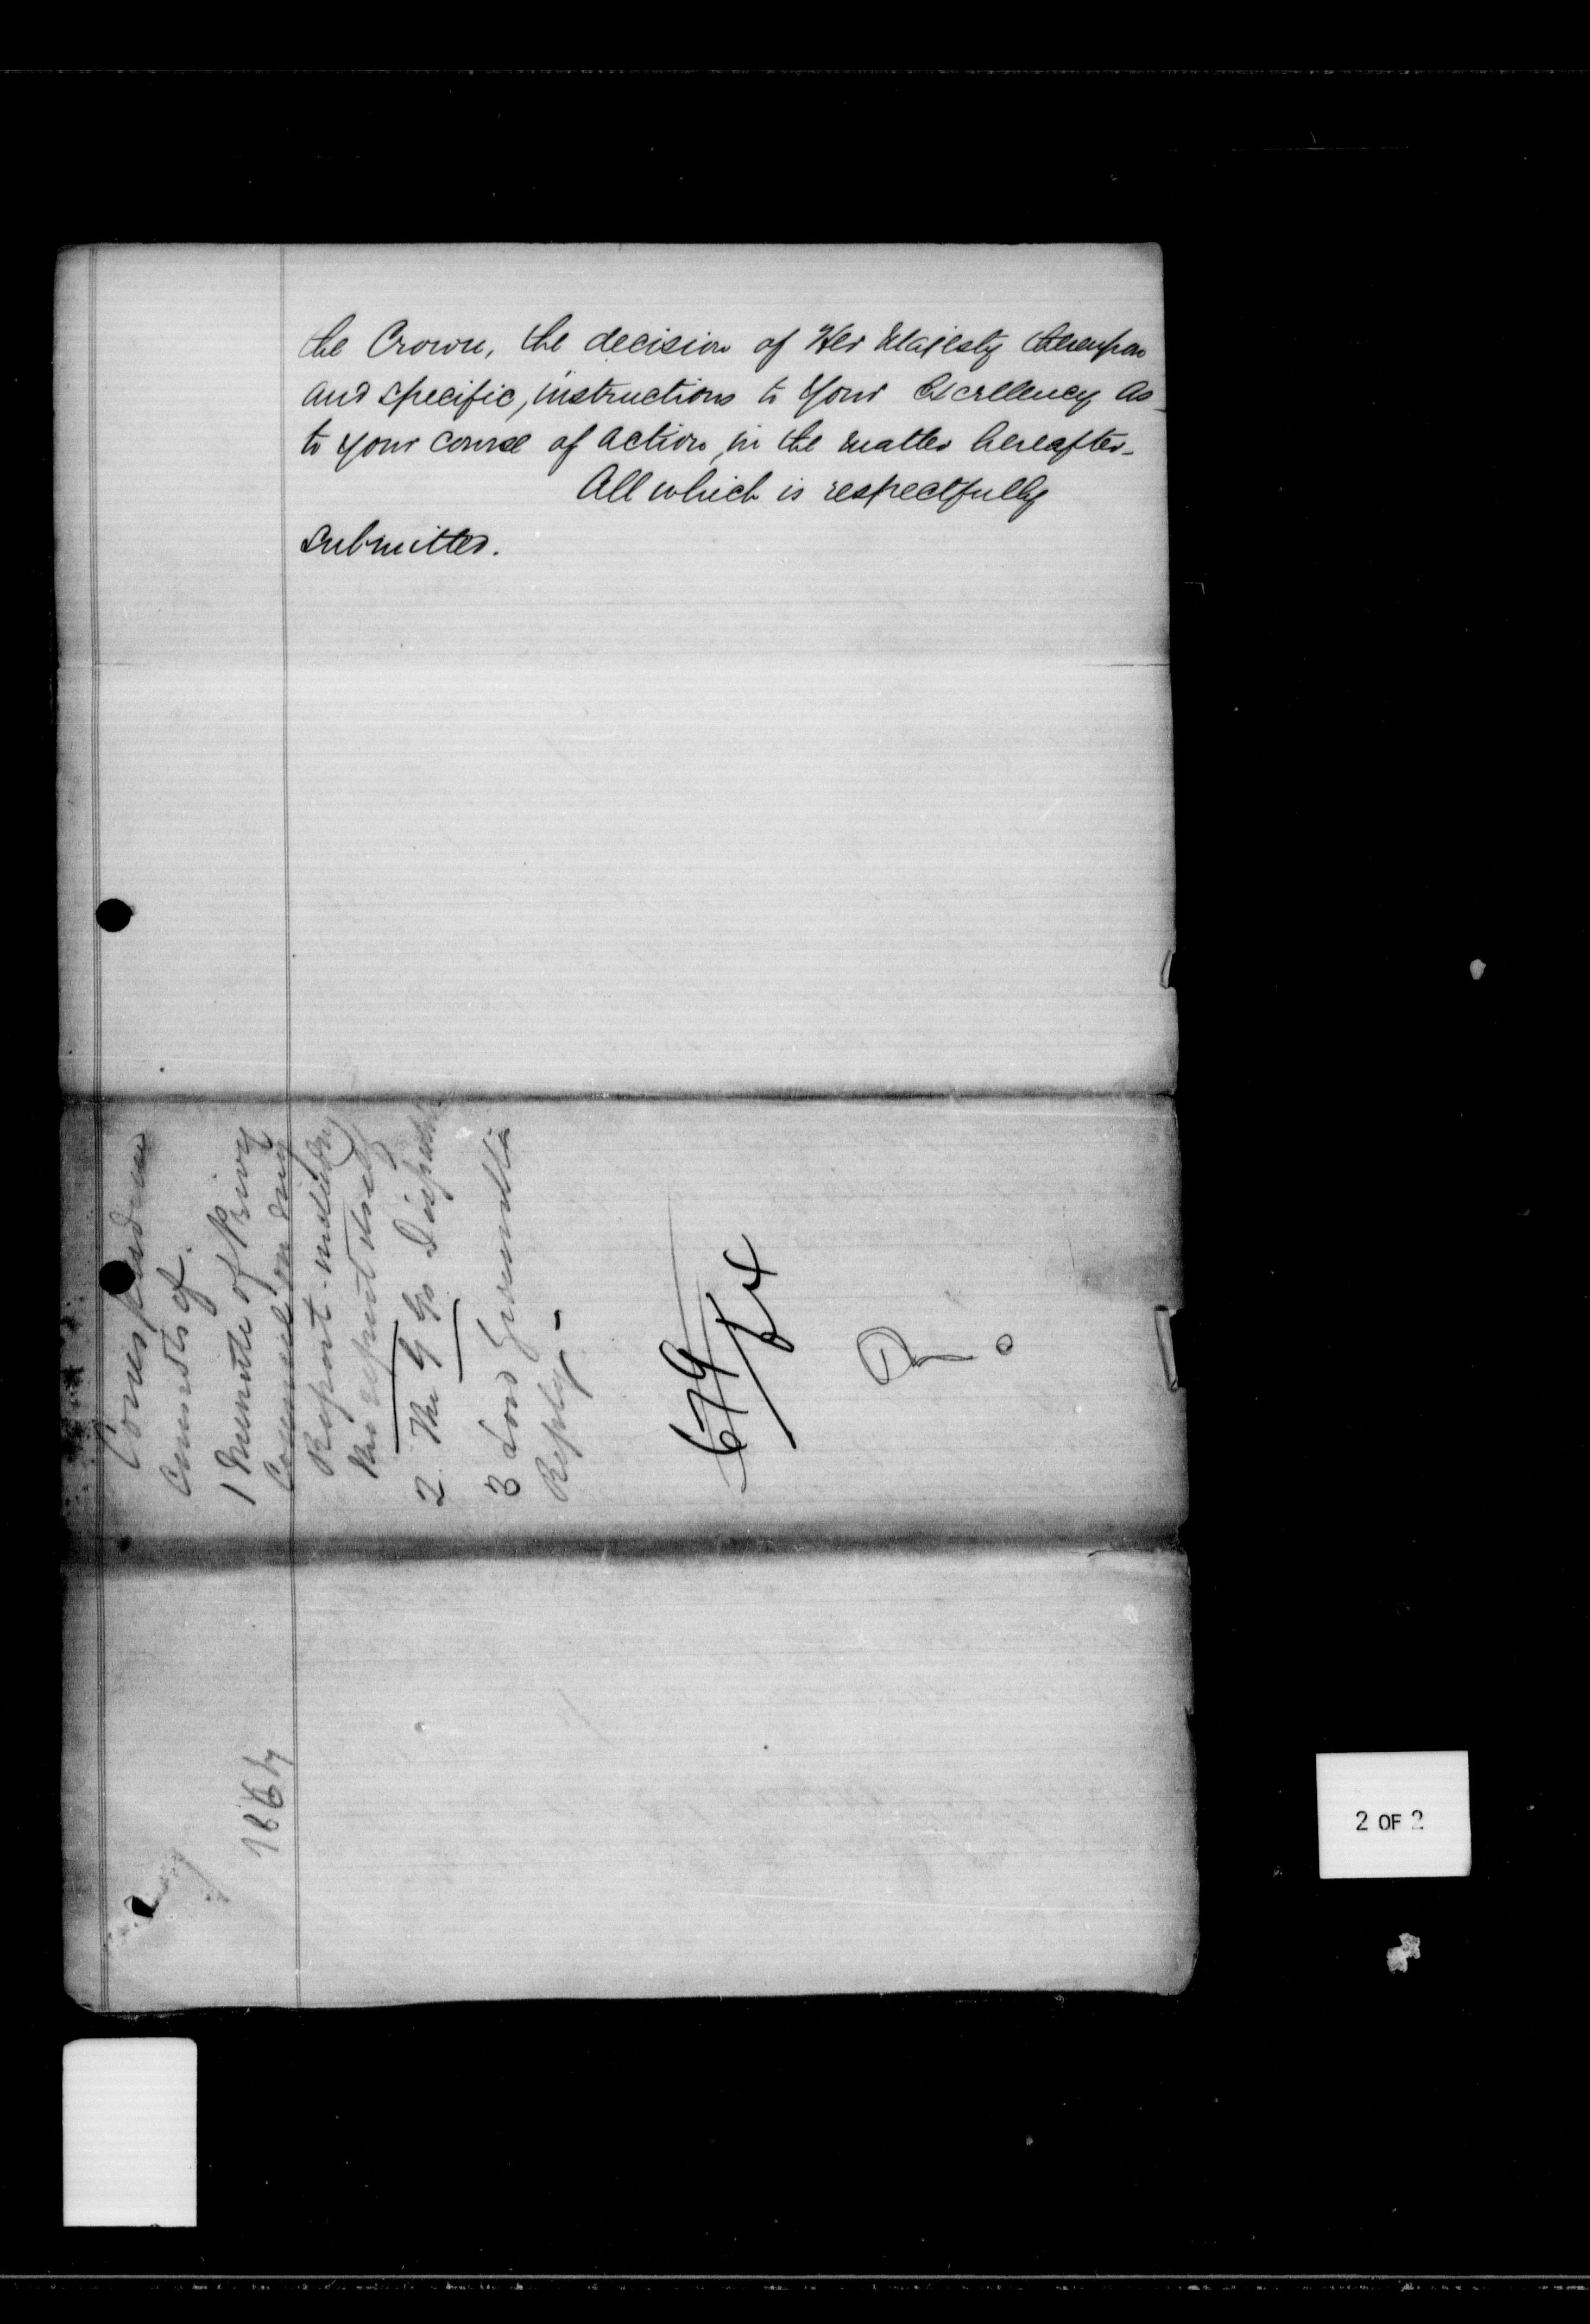 the Crown, the decision of Her Majesty thereupon
and specific, instructions to Your Excellency as
to your course of action, in the matter hereafter.
All which is respectfully
submitted.
Correspondence
Consists of.
1 Minute of Privy
Council on my
Report - including
the report itself
2. The G G's Dispatch
3 Lord Granville's
Reply -
679
2 OF 2